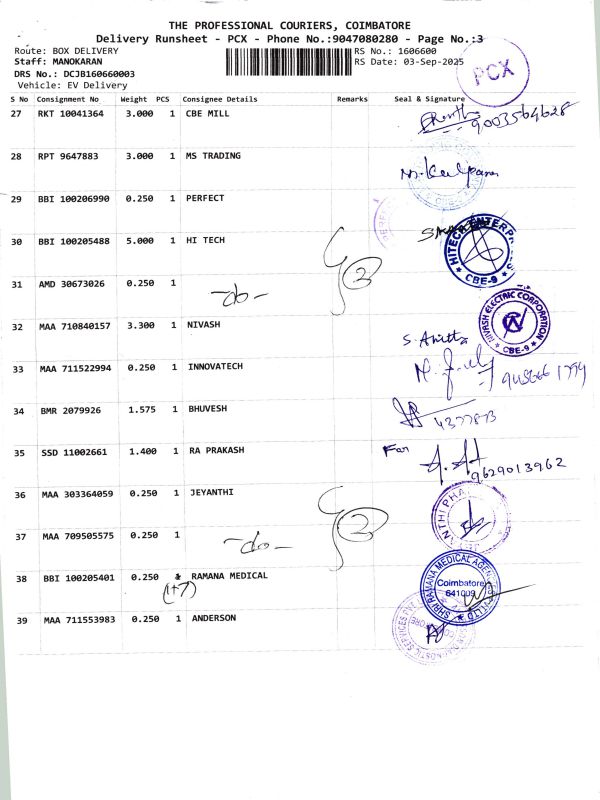 THE PROFESSIONAL COURIERS, COIMBATORE
Delivery Runsheet - PCX - Phone No.:9047080280 - Page No.:3
Route: BOX DELIVERY
RS No.: 1606600
Staff: MANOKARAN
RS Date: 03-Sep-2025
DRS No.: DCJB160660003
Vehicle: EV Delivery
PCX
S No Consignment No Weight PCS Consignee Details Remarks Seal & Signature
27 RKT 10041364 3.000 1 CBE MILL 9003564628
28 RPT 9647883 3.000 1 MS TRADING
29 BBI 100206990 0.250 1 PERFECT
30 BBI 100205488 5.000 1 HI TECH
HITECH ENTERPR
CBE-9
31 AMD 30673026 0.250 1 -do- 2
32 MAA 710840157 3.300 1 NIVASH
NIVASH ELECTRIC CORPORATION
CBE-9
33 MAA 711522994 0.250 1 INNOVATECH
34 BMR 2079926 1.575 1 BHUVESH
35 SSD 11002661 1.400 1 RA PRAKASH
9629013962
36 MAA 303364059 0.250 1 JEYANTHI
37 MAA 709505575 0.250 1 -do- 2
38 BBI 100205401 0.250 RAMANA MEDICAL
(1+7)
SHRI RAMANA MEDICAL AGENCIES PVT LTD
Coimbatore
641009
39 MAA 711553983 0.250 1 ANDERSON